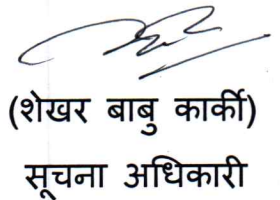 (शेखर बाबु कार्की)
सूचना अधिकारी